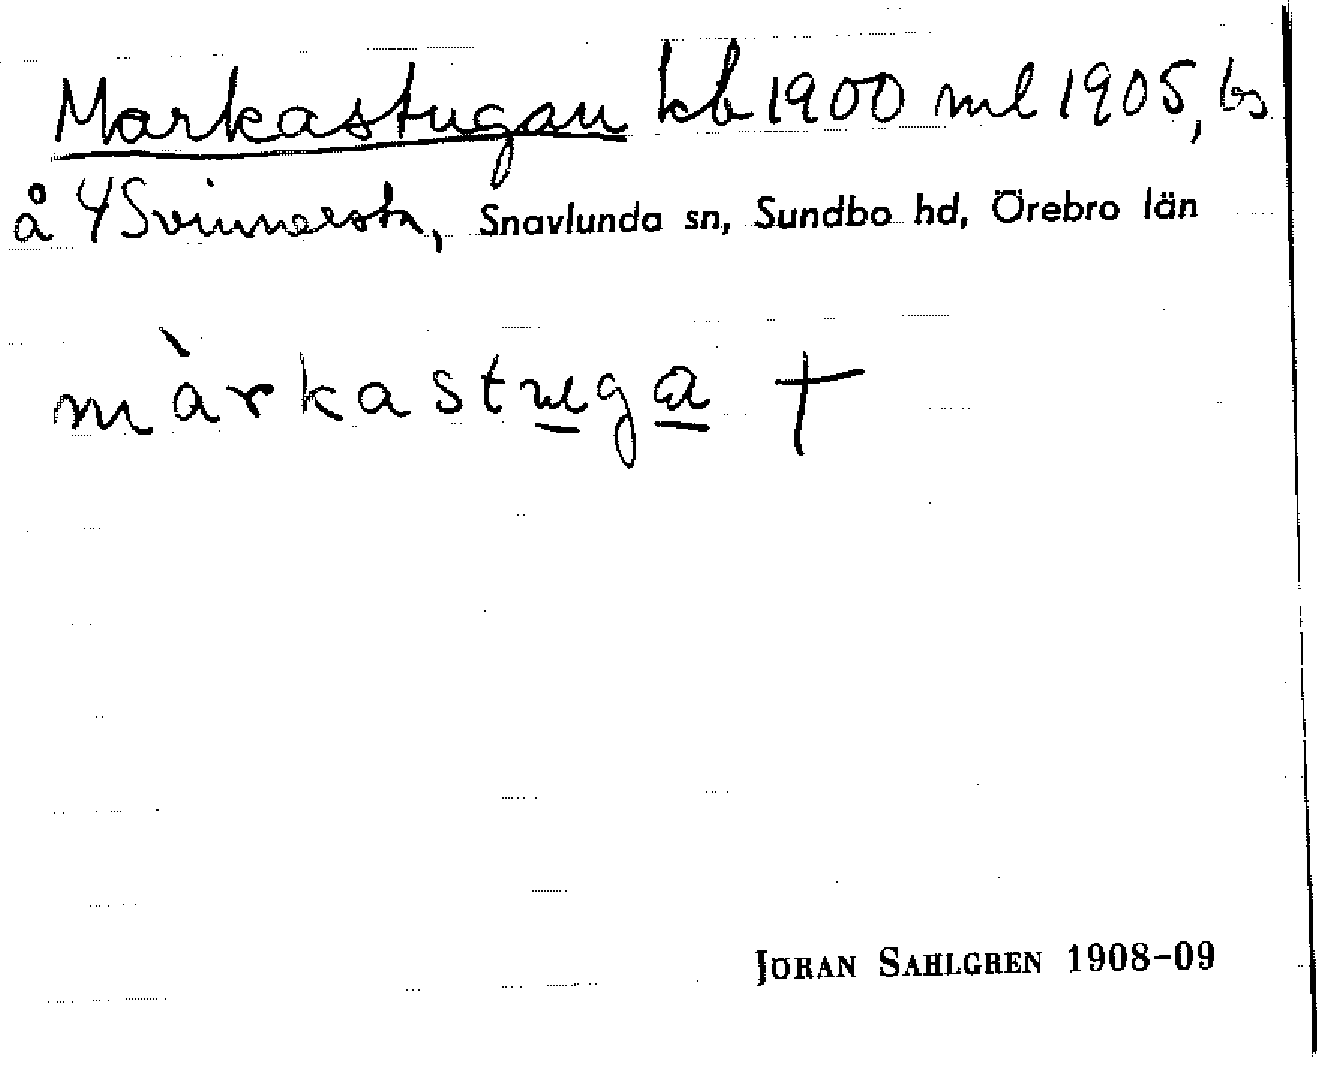 Markastugan kb 1900 ml 1905, bs
å 4 Svinnersta, Snavlunda sn, Sundbo hd, Örebro län
màrkastuga †
JÖRAN SAHLGREN 1908-09